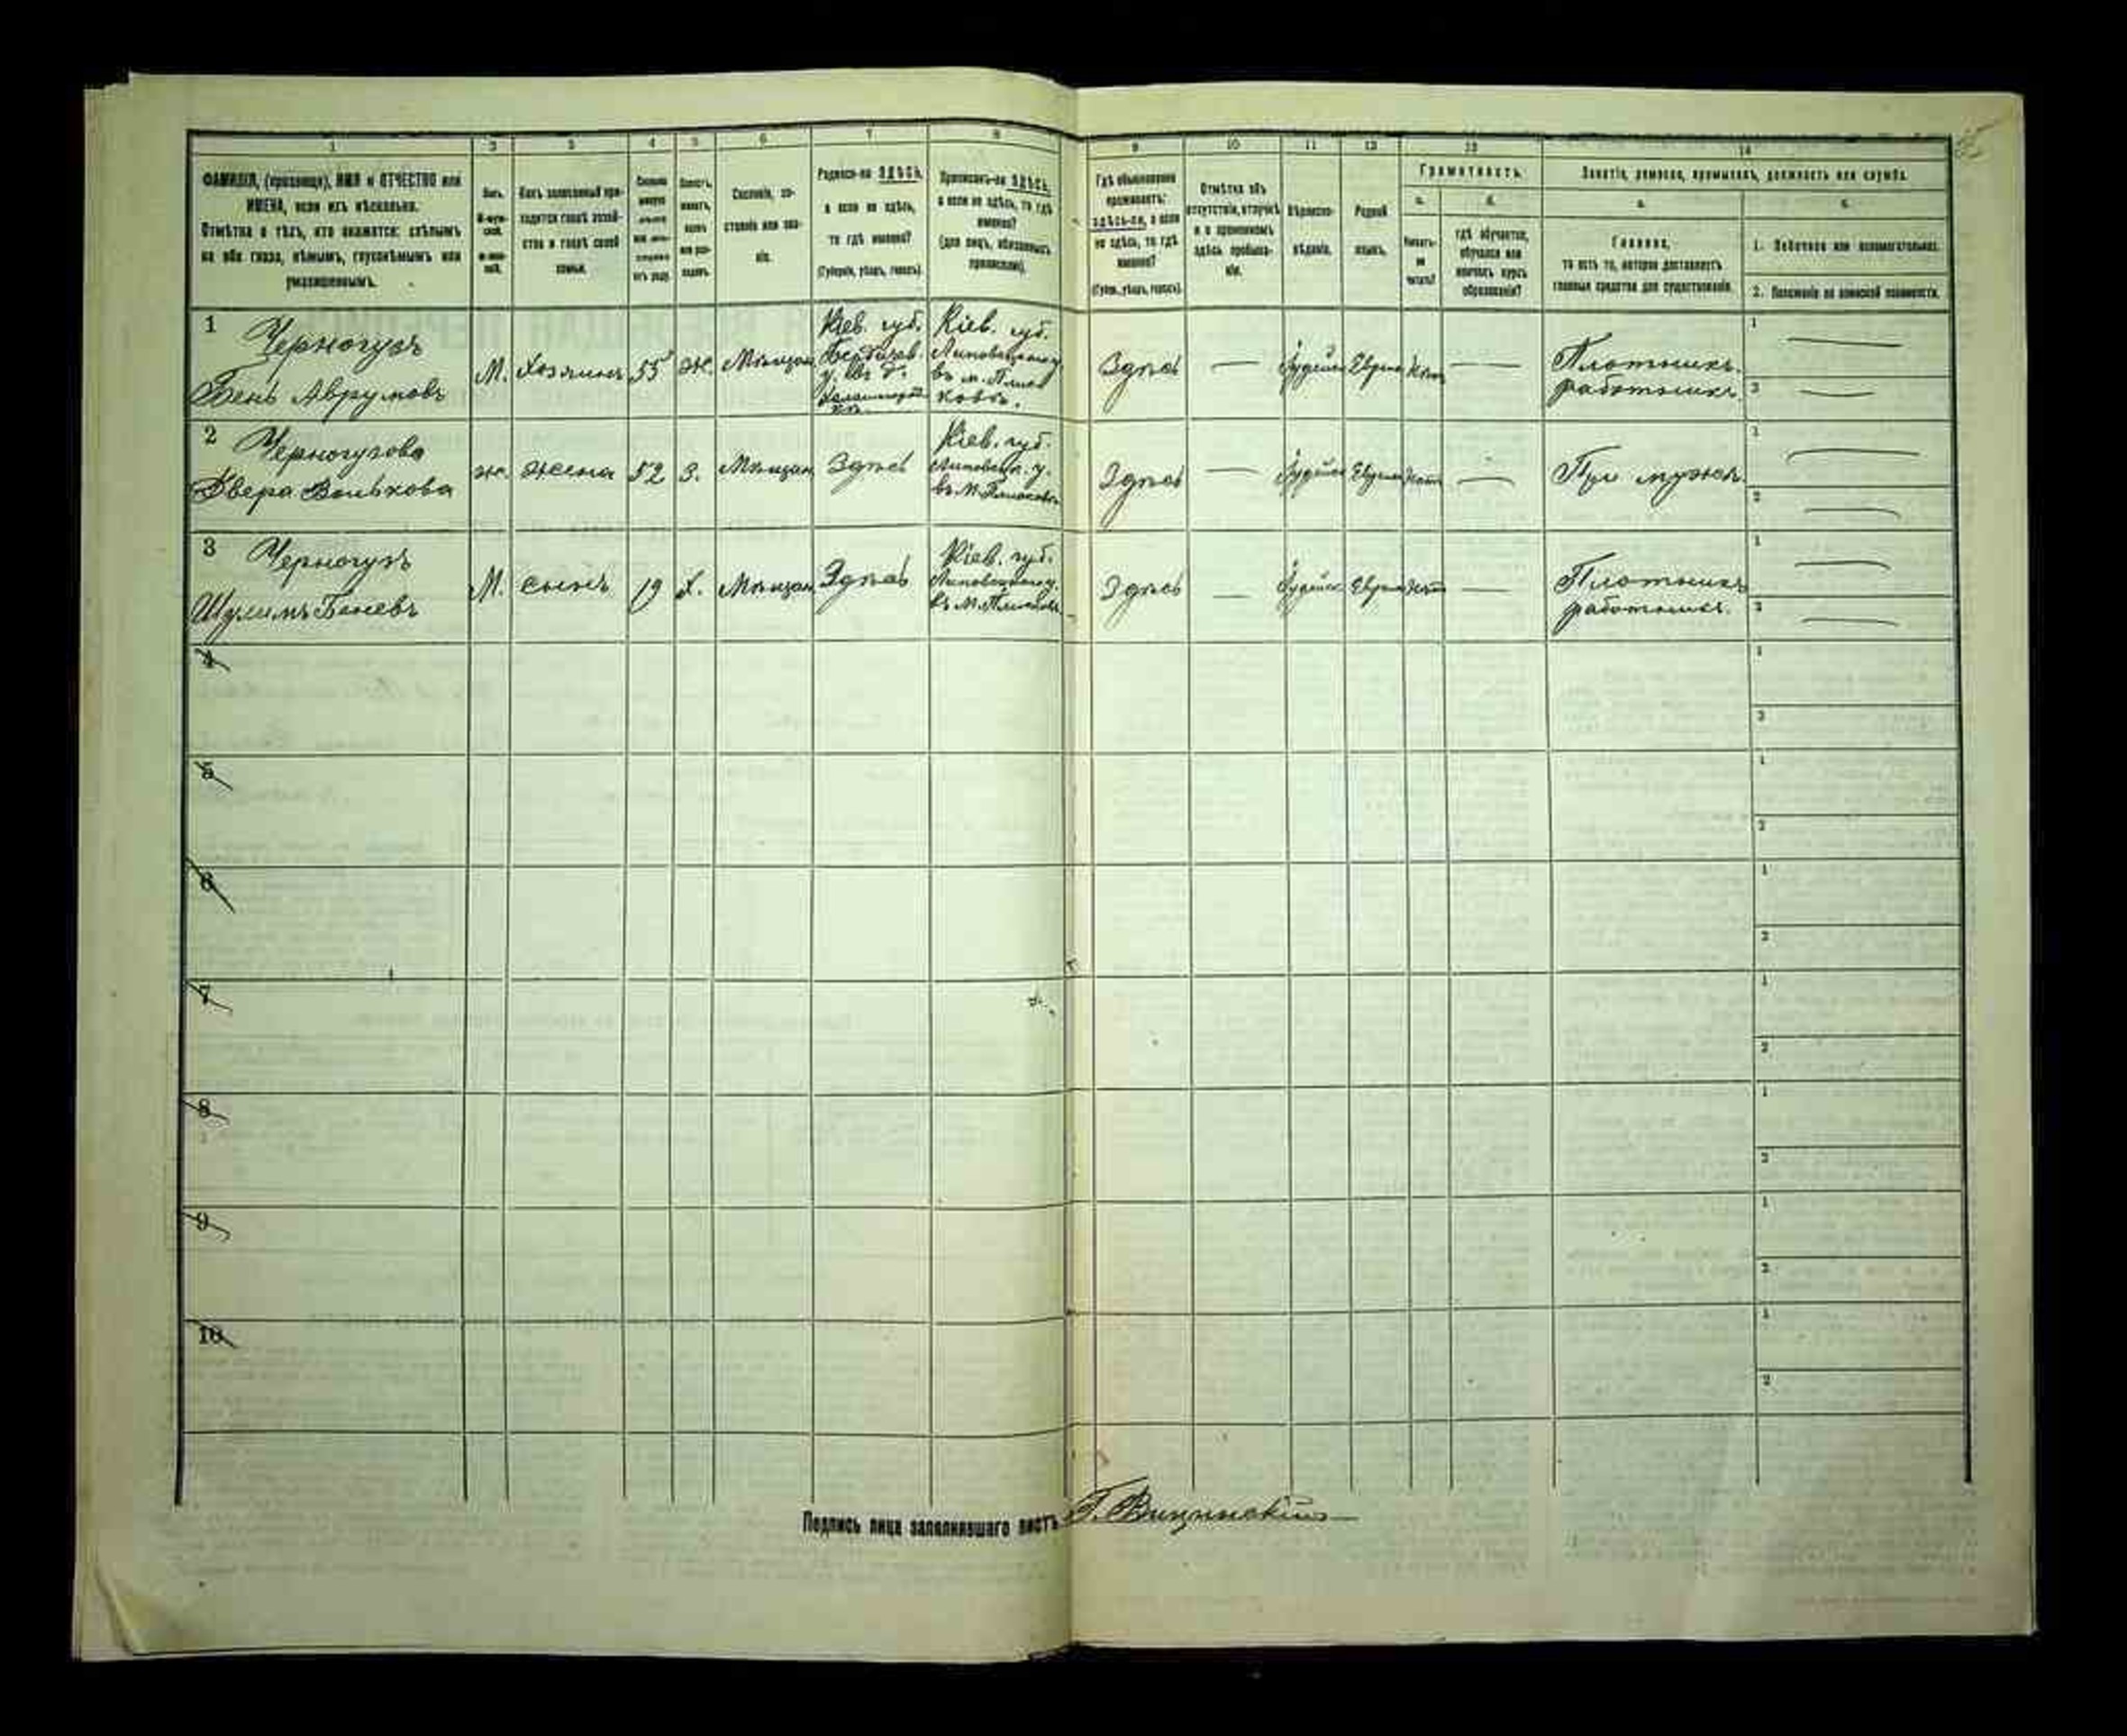 1 2 3 4 5 6 7 8 9 10 11 12 13 14
ФАМИЛІЯ, (прозвище), ИМЯ и ОТЧЕСТВО или
ИМЕНА, если ихъ нѣсколько.
Отмѣтка о тѣхъ, кто окажется: слѣпымъ
на оба глаза, нѣмымъ, глухонѣмымъ или
умалишеннымъ.
Полъ.
Какъ записанный при-
ходится главѣ хозяй-
ства и главѣ своей
семьи.
Сословіе, со-
стояніе или зва-
ніе.
Родился-ли ЗДѢСЬ,
а если не здѣсь,
то гдѣ именно?
(Губернія, уѣздъ, городъ).
Приписанъ-ли ЗДѢСЬ,
а если не здѣсь, то гдѣ
именно?
(для лицъ, обязанныхъ
припискою).
Гдѣ обыкновенно
проживаетъ:
здѣсь-ли, а если
не здѣсь, то гдѣ
именно?
(Губерн., уѣздъ, городъ).
Отмѣтка объ
отсутствіи, отлучкѣ
и о временномъ
здѣсь пребыва-
ніи.
Вѣроиспо-
вѣданіе.
Родной
языкъ.
Грамотность.
а. б.
Умѣетъ-
ли
читать?
гдѣ обучается,
обучался или
кончилъ курсъ
образованія?
Занятіе, ремесло, промыселъ, должность или служба.
а. б.
Главное,
то есть то, которое доставляетъ
главныя средства для существованія.
1. Побочное или вспомогательное.
2. Положеніе по воинской повинности.
1 Черногузъ
Бень Аврумовъ
М. Хозяинъ 55 ж. Мѣщан
Кіев. губ.
Бердичев.
у. въ д.
Кіев. губ.
Липовецкаго у.
въ м. Плис
ковѣ.
Здѣсь — Іудейск Еврейс Нѣтъ —
Плотникъ
работникъ.
1 —
2 —
2 Черногузова
Двера Вольkова
ж. жена 52 З. Мѣщан Здѣсь
Кіев. губ.
Липовецк. у.
въ м. Плисковѣ
Здѣсь — Іудейск Еврейс Нѣтъ —
При мужѣ.
1 —
2 —
3 Черногузъ
Шулимъ Беневъ
М. сынъ 19 Х. Мѣщан Здѣсь
Кіев. губ.
Липовецкаго у.
въ м. Плисковѣ
Здѣсь — Іудейск Еврейс Нѣтъ —
Плотникъ
работникъ.
1 —
2 —
4 1
2
5 1
2
6 1
2
7 1
2
8 1
2
9 1
2
10 1
2
Подпись лица заполнявшаго листъ